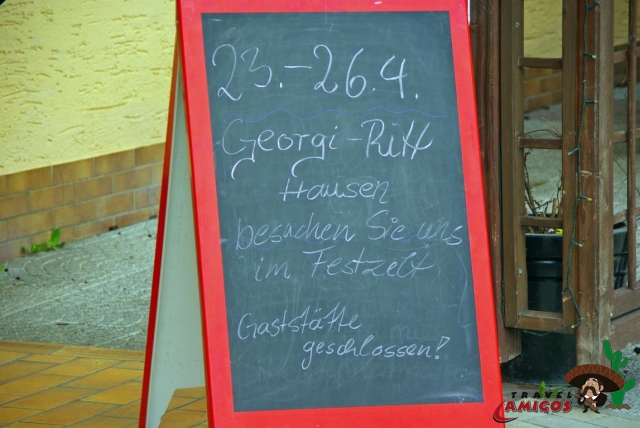 23.-26.4.
Georgi-Ritt
Hausen
besuchen Sie uns
im Festzelt
Gaststätte
geschlossen!
TRAVEL
AMIGOS